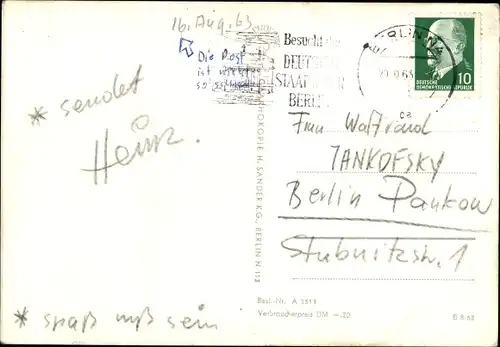 16. Aug. 63
Die Post
ist
so
Besucht die
DEUTSCHE
STAATSOPER
BERLIN
BERLIN N4
DEUTSCHE
DEMOKRATISCHE REPUBLIK
10
* sendet
Heinz.
Frau Waltraud
JANKOFSKY
Berlin Pankow
Stubnitzstr. 1
H. SANDER K.G., BERLIN N 113
* spaß muß sein
Best.-Nr. A 1511
Verbraucherpreis DM -,20
B 8/63